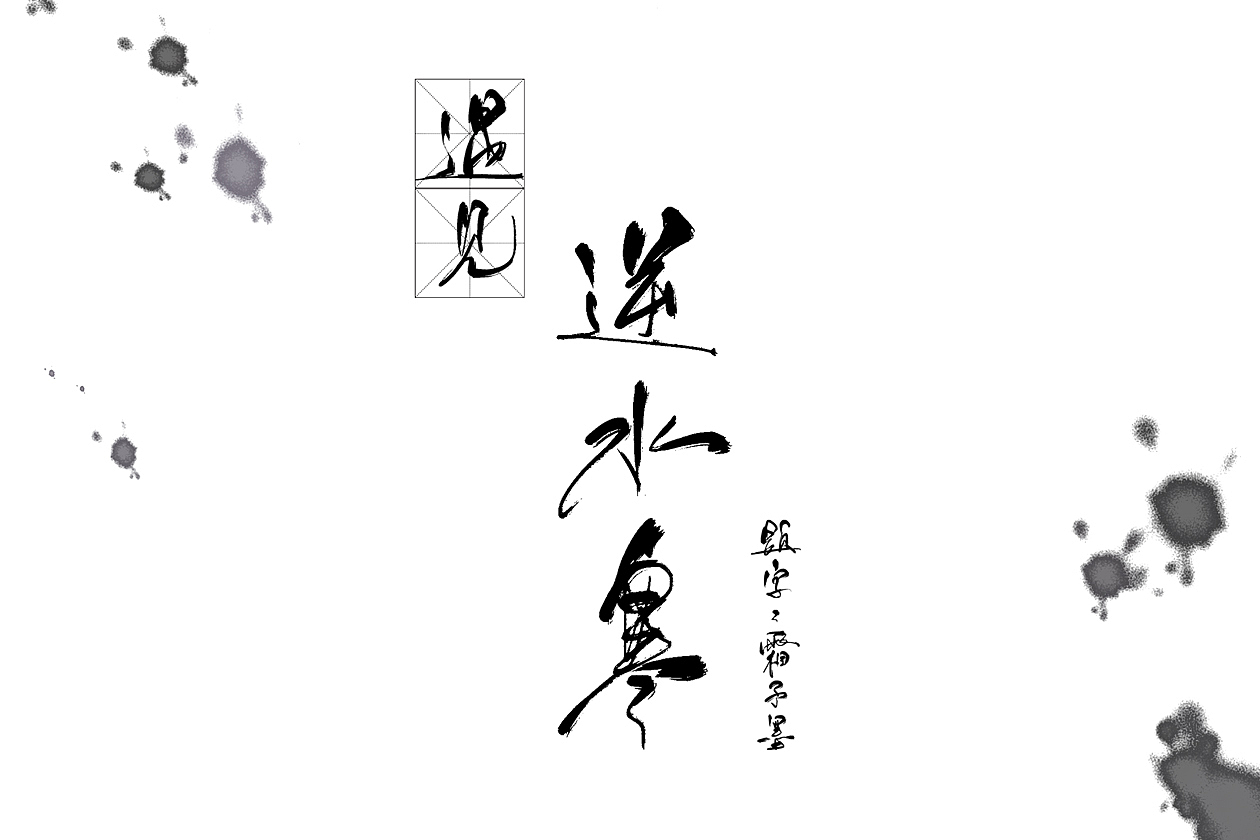 遇见
逆水寒
题字：霜子墨